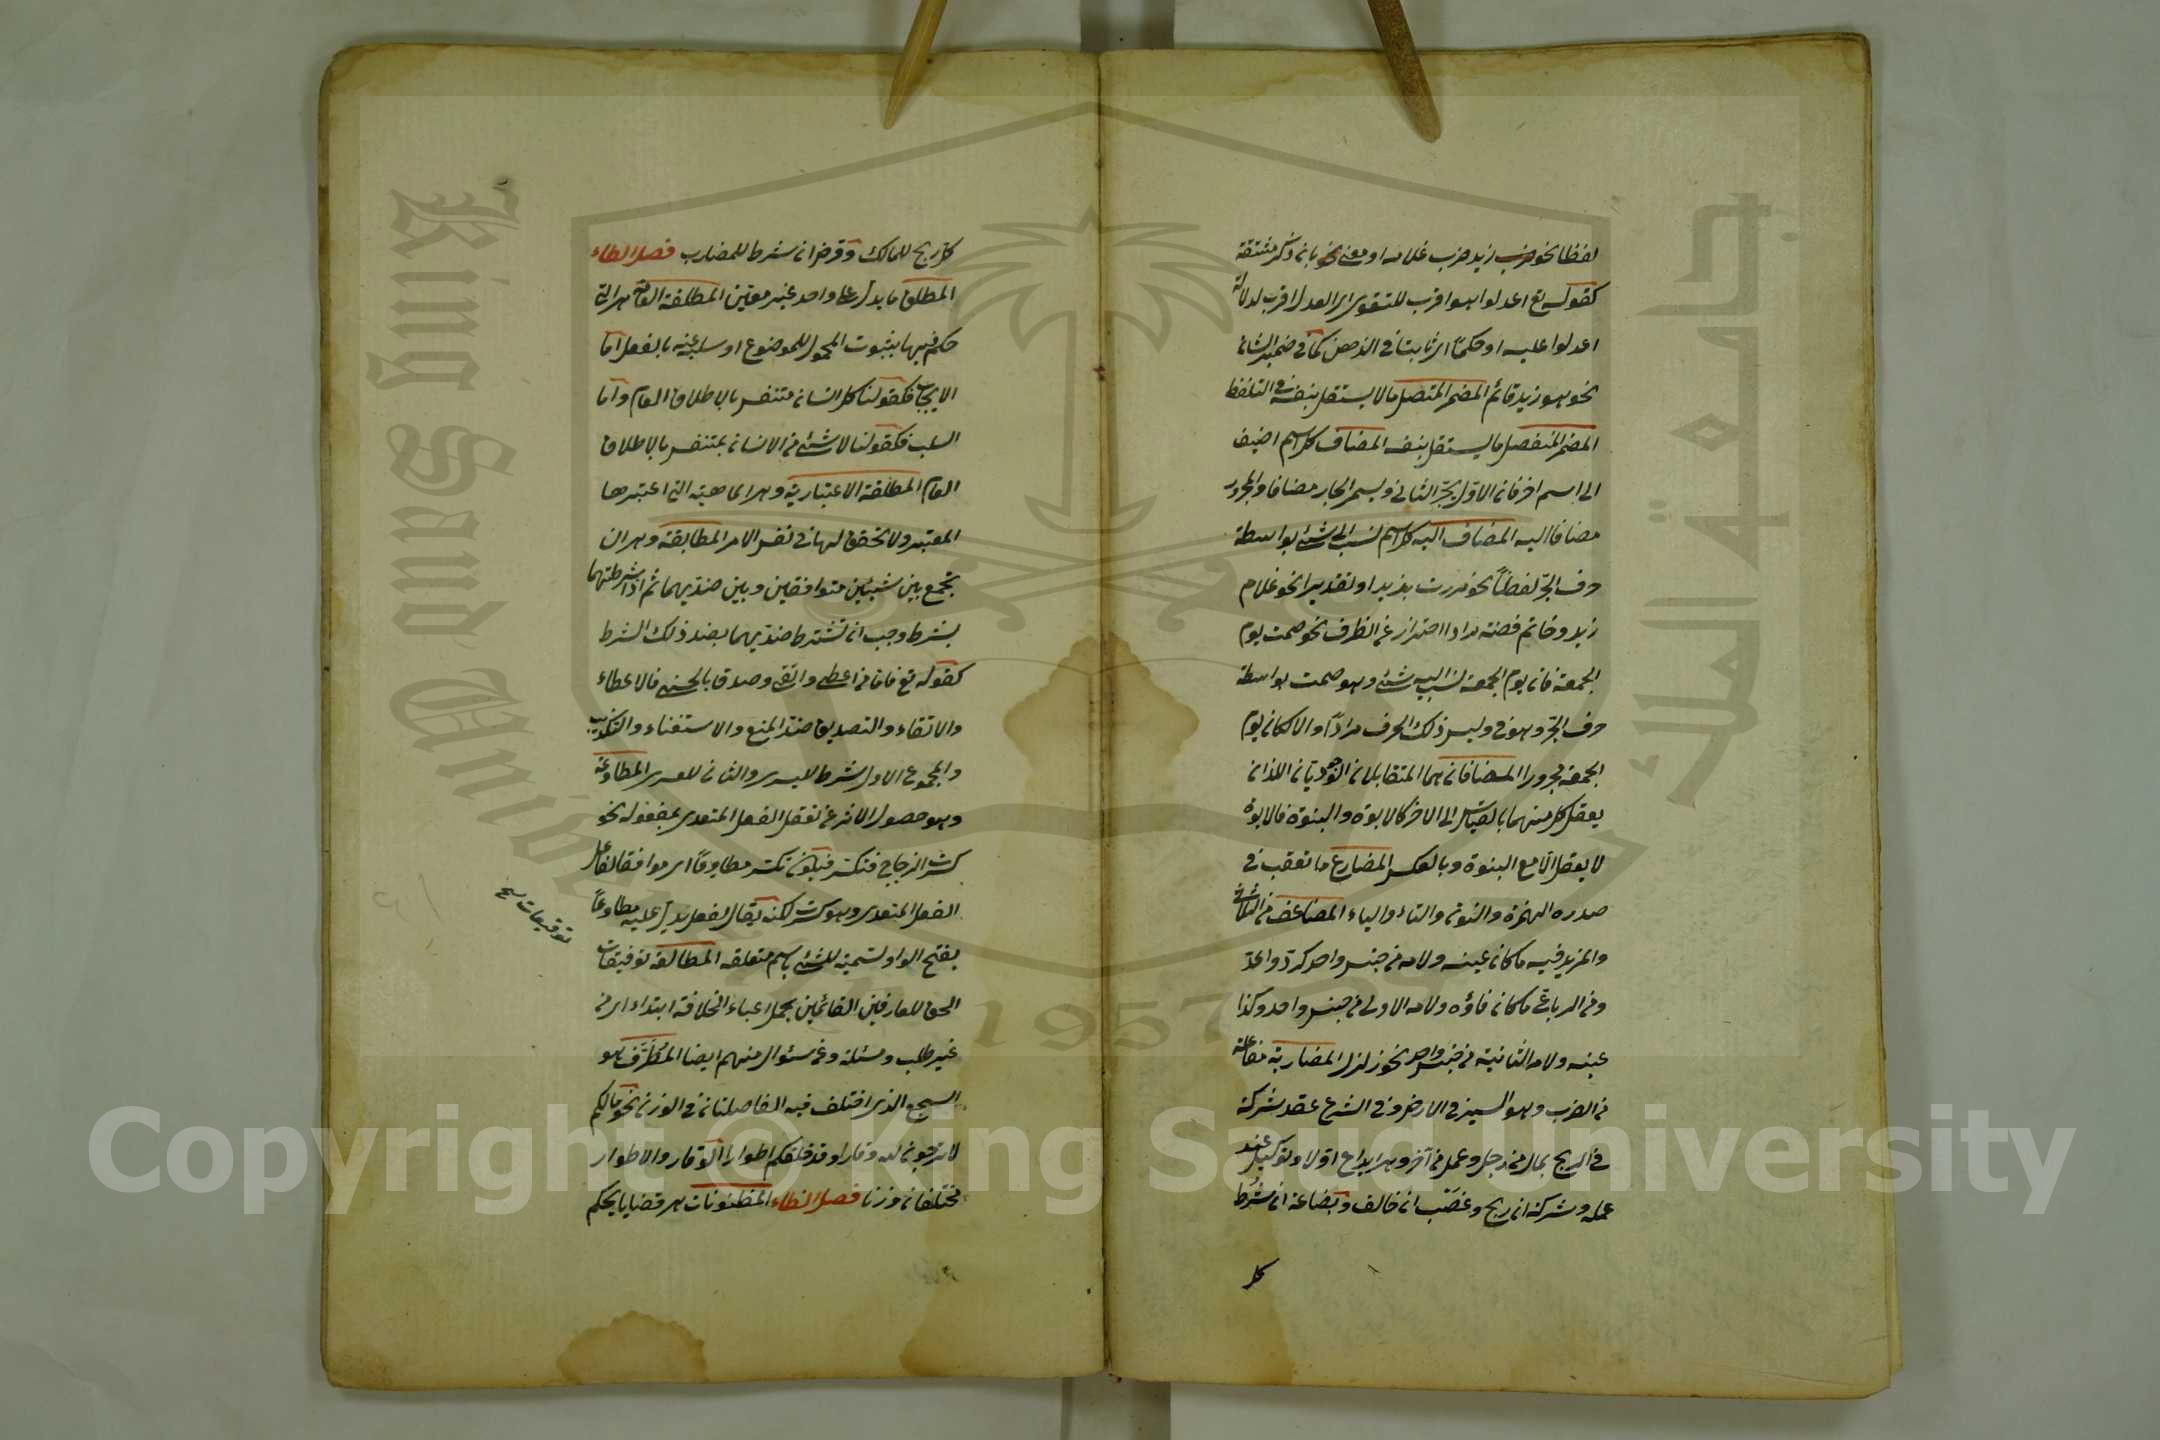 لفظا نحو ضرب زيد ضرب غلامه او معنى بان ذكر مشتقه
كقوله تع اعدلوا هو اقرب للتقوى اى العدل اقرب لدلالة
اعدلوا عليه او حكمًا اى ثابتا فى الذهن كما فى ضمير الشان
نحو هو زيد قائم المضمر المتصل ما لا يستقل بنفسه فى التلفظ
المضمر المنفصل ما يستقل بنفسه المضاف كل اسم اضيف
الى اسم اخر فان الاول يجر الثانى ويسمى الجار مضافا والمجرور
مضافا اليه المضاف اليه كل اسم نسب الى شئ بواسطة
حرف الجر لفظاً نحو مررت بزيد او تقديرا نحو غلام
زيد وخاتم فضة مرادا احتراز عن الظرف نحو صمت يوم
الجمعة فان يوم الجمعة نسب اليه شئ وهو صمت بواسطة
حرف الجر وهو فى وليس ذلك الحرف مرادًا والا لكان يوم
الجمعة مجرورا المضافان هما المتقابلان الوجوديان اللذان
يعقل كل منهما بالقياس الى الاخر كالابوة والبنوة فالابوة
لا يعقل الا مع البنوة وبالعكس المضارع ما تعقب فى
صدره الهمزة والنون والتاء والياء المضاعف من الثلاثى
والمزيد فيه ما كان عينه ولامه من جنس واحد كرد واعد
ومن الرباعى ما كان فاؤه ولامه الاولى من جنس واحد وكذا
عينه ولامه الثانية من جنس واحد نحو زلزل المضاربة مفاعلة
من الضرب وهو السير فى الارض وفى الشرع عقد شركة
فى الربح بمال من رجل وعمل من آخر وهى ايداع اولا وتوكيل عند
عمله وشركة ان ربح وغصب ان خالف وبضاعة ان شرط
كل
كل ربح للمالك وقرض ان شرط للمضارب فصل الطاء
المطلق ما يدل على واحد غير معين المطلقة العامة هى التى
حكم فيها بثبوت المحمول للموضوع او سلبه عنه بالفعل اما
الايجاب فكقولنا كل انسان متنفس بالاطلاق العام واما
السلب فكقولنا لا شئ من الانسان بمتنفس بالاطلاق
العام المطلقة الاعتبارية وهى الماهية التى اعتبرها
المعتبر ولا تحقق لها فى نفس الامر المطابقة وهى ان
تجمع بين شيئين متوافقين وبين ضديهما ثم اذا شرطتهما
بشرط وجب ان تشترط ضديهما بضد ذلك الشرط
كقوله تع فاما من اعطى واتقى وصدق بالحسنى فالاعطاء
والاتقاء والتصديق ضد المنع والاستغناء والتكذيب
والمجموع الاول شرط لليسرى والثانى للعسرى المطاوعة
وهو حصول الاثر عن تعقل الفعل المتعدى بمفعوله نحو
كسرت الزجاج فتكسر فيكون تكسر مطاوعًا اى موافقا لفاعل
الفعل المتعدى وهو كسرت لكنه يقال لفعل يدل عليه مطاوعًا
بفتح الواو تسمية للشئ باسم متعلقه المطالعة توفيقات
توقيعات نسخ
الحق للعارفين القائمين بحمل اعباء الخلافة ابتداء اى من
غير طلب ومسئلة وعن سئوال منهم ايضا المطَرَّف هو
السجع الذى اختلف فيه الفاصلتان فى الوزن نحو مالكم
لا ترجون لله وقارا وقد خلقكم اطوارا الوقار والاطوار
مختلفان وزنا فصل الظاء المظنونات هى قضايا يحكم
Copyright © King Saud University
King Saud University
جامعة الملك
1957